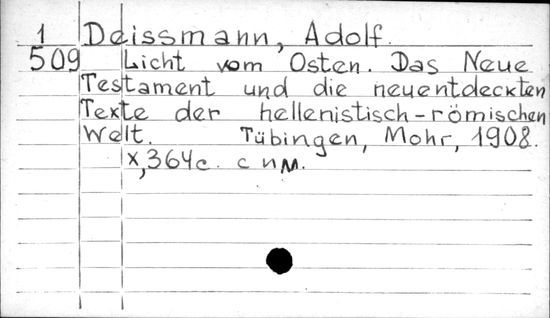 1 Deissmann, Adolf.
509 Licht vom Osten. Das Neue
Testament und die neuentdeckten
Texte der hellenistisch-römischen
Welt. Tübingen, Mohr, 1908.
X, 364c. с илл.